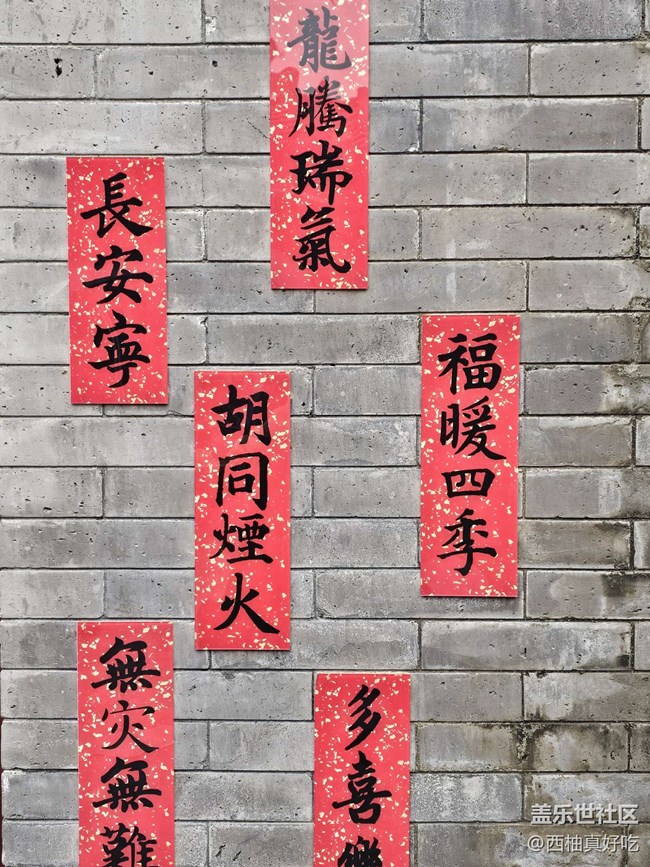 龍騰瑞氣
長安寧
福暖四季
胡同煙火
無灾無難
多喜樂
盖乐世社区
@西柚真好吃